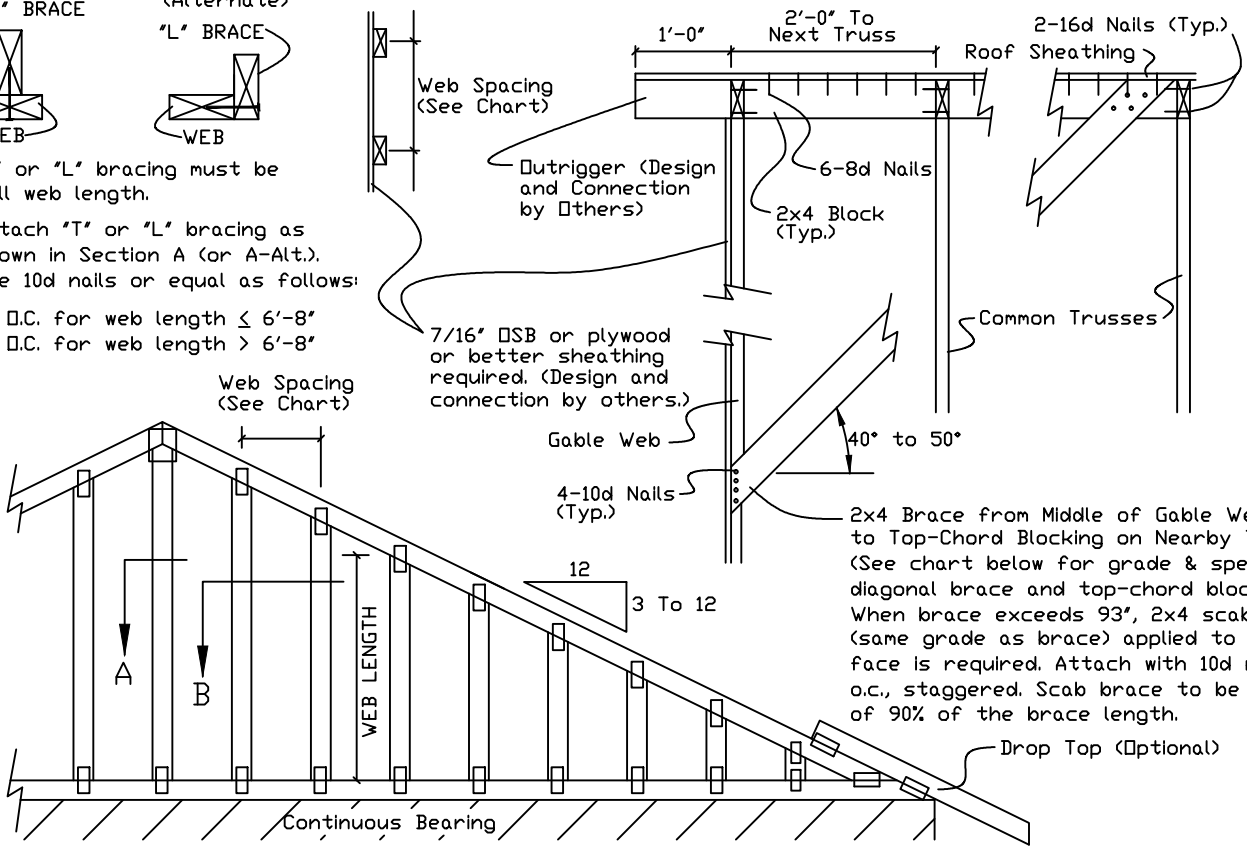 " BRACE
(Alternate)
"L" BRACE
WEB
" or "L" bracing must be
ll web length.
ttach "T" or "L" bracing as
own in Section A (or A-Alt.).
e 10d nails or equal as follows:
O.C. for web length ≤ 6'-8"
O.C. for web length > 6'-8"
Web Spacing
(See Chart)
1'-0"
2'-0" To
Next Truss
2-16d Nails (Typ.)
Roof Sheathing
Outrigger (Design
and Connection
by Others)
6-8d Nails
2x4 Block
(Typ.)
Common Trusses
7/16" OSB or plywood
or better sheathing
required. (Design and
connection by others.)
Gable Web
40° to 50°
4-10d Nails
(Typ.)
2x4 Brace from Middle of Gable We
to Top-Chord Blocking on Nearby
(See chart below for grade & spe
diagonal brace and top-chord bloc
When brace exceeds 93", 2x4 scab
(same grade as brace) applied to
face is required. Attach with 10d
o.c., staggered. Scab brace to be
of 90% of the brace length.
Web Spacing
(See Chart)
12
3 To 12
A
B
WEB LENGTH
Drop Top (Optional)
Continuous Bearing